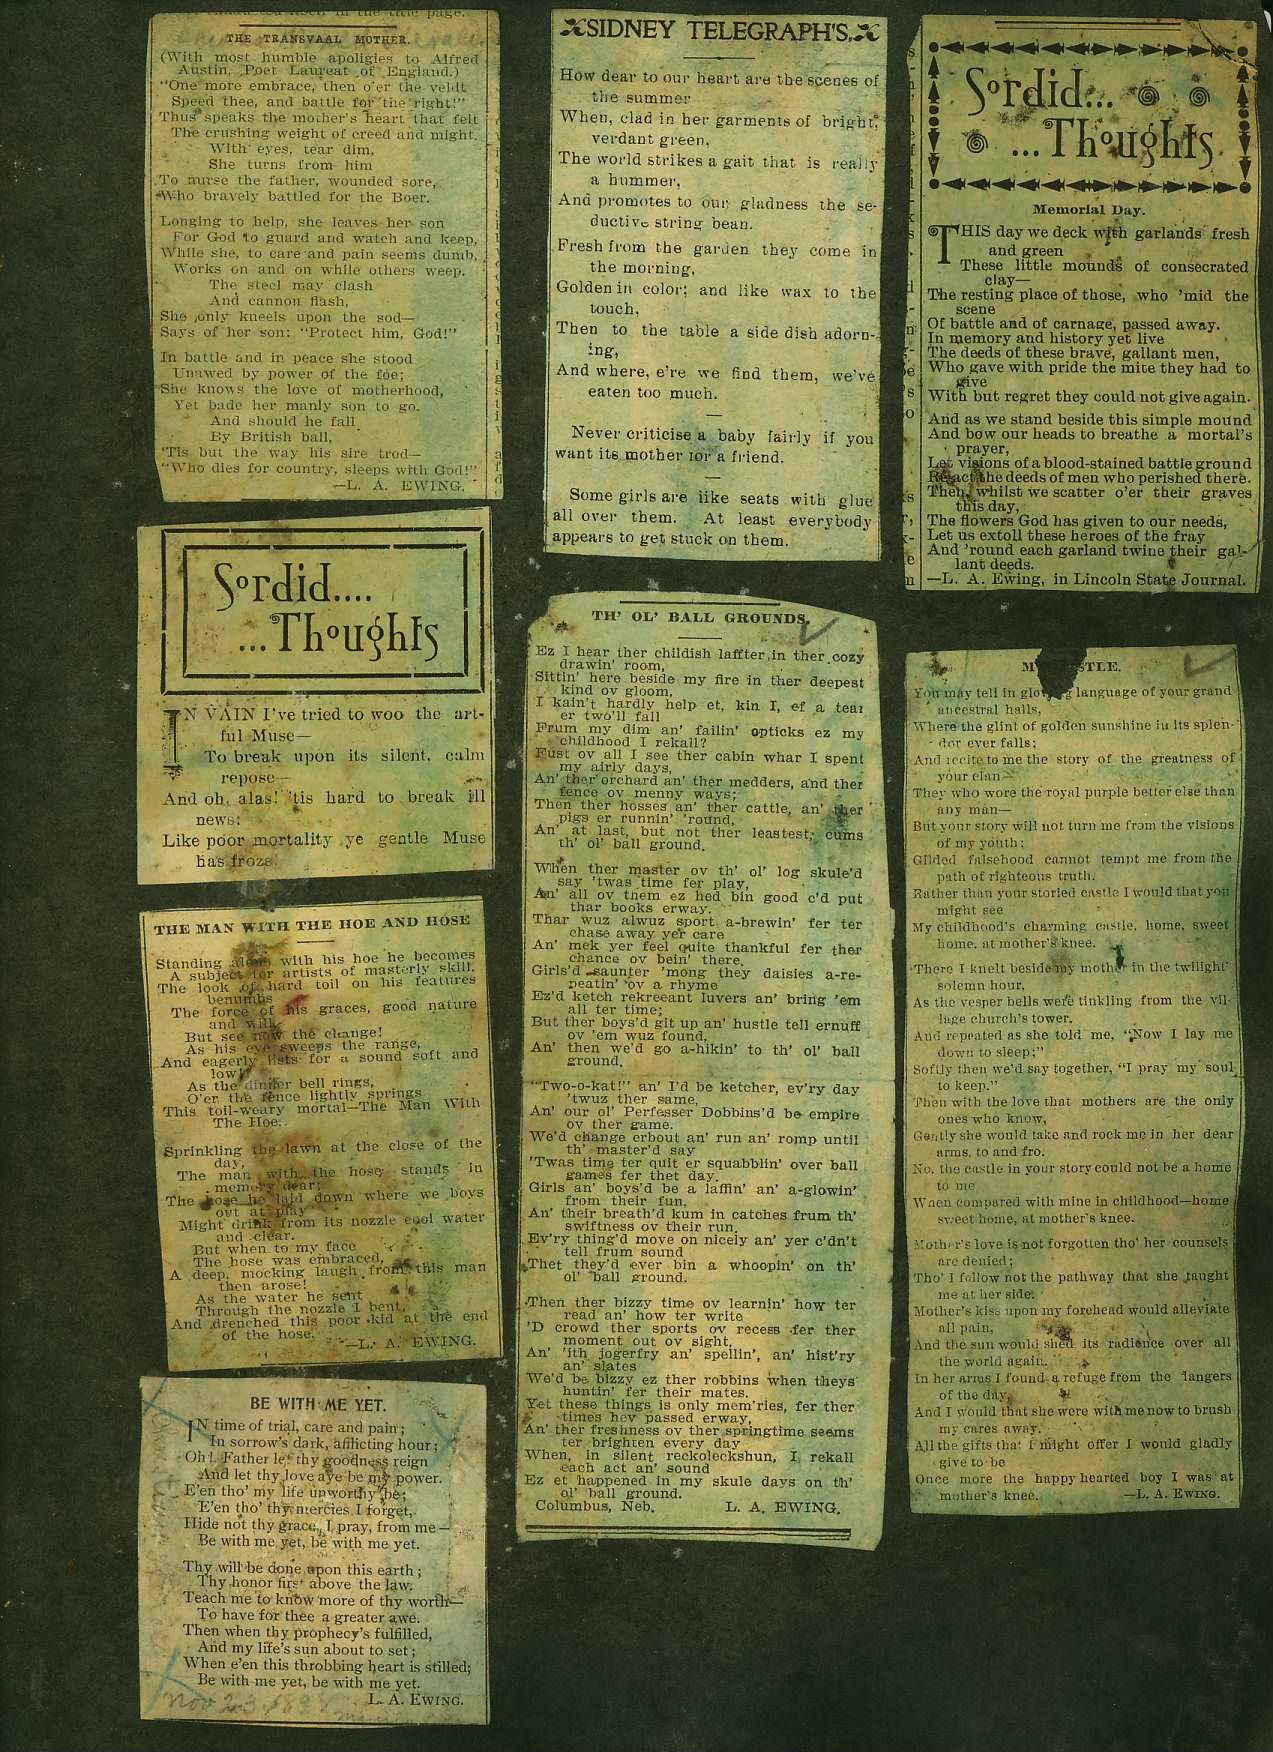 THE TRANSVAAL MOTHER.
(With most humble apoligies to Alfred
Austin, Poet Laureat of England.)
"One more embrace, then o'er the veldt
Speed thee, and battle for the right!"
Thus speaks the mother's heart that felt
The crushing weight of creed and might.
With eyes, tear dim,
She turns from him
To nurse the father, wounded sore,
Who bravely battled for the Boer.
Longing to help, she leaves her son
For God to guard and watch and keep,
While she, to care and pain seems dumb,
Works on and on while others weep.
The steel may clash
And cannon flash,
She only kneels upon the sod—
Says of her son: "Protect him, God!"
In battle and in peace she stood
Unawed by power of the foe;
She knows the love of motherhood,
Yet bade her manly son to go.
And should he fall
By British ball,
'Tis but the way his sire trod—
"Who dies for country, sleeps with God!"
—L. A. EWING.
Sordid....
...Thoughts
IN VAIN I've tried to woo the art-
ful Muse—
To break upon its silent, calm
repose—
And oh, alas! 'tis hard to break ill
news:
Like poor mortality ye gentle Muse
has froze.
THE MAN WITH THE HOE AND HOSE
Standing alone with his hoe he becomes
A subject for artists of masterly skill.
The look of hard toil on his features
benumbs
The force of his graces, good nature
and will.
But see now the change!
As his eye sweeps the range,
And eagerly lists for a sound soft and
low!
As the dinner bell rings,
O'er the fence lightly springs
This toil-weary mortal—The Man With
The Hoe.
Sprinkling the lawn at the close of the
day,
The man with the hose stands in
memory dear;
The hose he laid down where we boys
out at play
Might drink from its nozzle cool water
and clear.
But when to my face
The hose was embraced,
A deep, mocking laugh from this man
then arose!
As the water he sent
Through the nozzle I bent,
And drenched this poor kid at the end
of the hose.
—L. A. EWING.
BE WITH ME YET.
IN time of trial, care and pain;
In sorrow's dark, afflicting hour;
Oh! Father let thy goodness reign
And let thy love aye be my power.
E'en tho' my life unworthy be;
E'en tho' thy mercies I forget,
Hide not thy grace, I pray, from me—
Be with me yet, be with me yet.
Thy will be done upon this earth;
Thy honor first above the law.
Teach me to know more of thy worth—
To have for thee a greater awe.
Then when thy prophecy's fulfilled,
And my life's sun about to set;
When e'en this throbbing heart is stilled;
Be with me yet, be with me yet.
L. A. EWING.
Nov 23, 1898
SIDNEY TELEGRAPH'S.
How dear to our heart are the scenes of
the summer
When, clad in her garments of bright,
verdant green,
The world strikes a gait that is really
a hummer,
And promotes to our gladness the se-
ductive string bean.
Fresh from the garden they come in
the morning,
Golden in color; and like wax to the
touch,
Then to the table a side dish adorn-
ing,
And where, e're we find them, we've
eaten too much.
Never criticise a baby fairly if you
want its mother for a friend.
Some girls are like seats with glue
all over them. At least everybody
appears to get stuck on them.
TH' OL' BALL GROUNDS.
Ez I hear ther childish laffter in ther cozy
drawin' room,
Sittin' here beside my fire in ther deepest
kind ov gloom,
I kain't hardly help et, kin I, ef a tear
er two'll fall
Frum my dim an' failin' opticks ez my
childhood I rekall?
Fust ov all I see ther cabin whar I spent
my airly days,
An' ther orchard an' ther medders, and ther
fence ov menny ways;
Then ther hosses an' ther cattle, an' ther
pigs er runnin' 'round,
An' at last, but not ther leastest, cums
th' ol' ball ground.
When ther master ov th' ol' log skule'd
say 'twas time fer play,
An' all ov them ez hed bin good c'd put
thar books erway.
Thar wuz alwuz sport a-brewin' fer ter
chase away yer care
An' mek yer feel quite thankful fer ther
chance ov bein' there.
Girls'd saunter 'mong they daisies a-re-
peatin' ov a rhyme
Ez'd ketch rekreeant luvers an' bring 'em
all ter time;
But ther boys'd git up an' hustle tell ernuff
ov 'em wuz found,
An' then we'd go a-hikin' to th' ol' ball
ground.
"Two-o-kat!" an' I'd be ketcher, ev'ry day
'twuz ther same,
An' our ol' Perfesser Dobbins'd be empire
ov ther game.
We'd change erbout an' run an' romp until
th' master'd say
'Twas time ter quit er squabblin' over ball
games fer thet day.
Girls an' boys'd be a laffin' an' a-glowin'
from their fun,
An' their breath'd kum in catches frum th'
swiftness ov their run.
Ev'ry thing'd move on nicely an' yer c'dn't
tell frum sound
Thet they'd ever bin a whoopin' on th'
ol' ball ground.
Then ther bizzy time ov learnin' how ter
read an' how ter write
'D crowd ther sports ov recess fer ther
moment out ov sight,
An' 'ith jogerfry an' spellin', an' hist'ry
an' slates
We'd be bizzy ez ther robbins when theys
huntin' fer their mates.
Yet these things is only mem'ries, fer ther
times hev passed erway,
An' ther freshness ov ther springtime seems
ter brighten every day
When, in silent reckoleckshun, I rekall
each act an' sound
Ez et happened in my skule days on th'
ol' ball ground.
Columbus, Neb. L. A. EWING.
Sordid...
...Thoughts
Memorial Day.
THIS day we deck with garlands fresh
and green
These little mounds of consecrated
clay—
The resting place of those, who 'mid the
scene
Of battle and of carnage, passed away.
In memory and history yet live
The deeds of these brave, gallant men,
Who gave with pride the mite they had to
give
With but regret they could not give again.
And as we stand beside this simple mound
And bow our heads to breathe a mortal's
prayer,
Let visions of a blood-stained battle ground
the deeds of men who perished there.
Then, whilst we scatter o'er their graves
this day,
The flowers God has given to our needs,
Let us extoll these heroes of the fray
And 'round each garland twine their gal-
lant deeds.
—L. A. Ewing, in Lincoln State Journal.
You may tell in glowing language of your grand
ancestral halls,
Where the glint of golden sunshine in its splen-
dor ever falls;
And recite to me the story of the greatness of
your clan—
They who wore the royal purple better else than
any man—
But your story will not turn me from the visions
of my youth;
Gilded falsehood cannot tempt me from the
path of righteous truth.
Rather than your storied castle I would that you
might see
My childhood's charming castle, home, sweet
home, at mother's knee.
There I knelt beside my mother in the twilight
solemn hour,
As the vesper bells were tinkling from the vil-
lage church's tower.
And repeated as she told me, "Now I lay me
down to sleep;"
Softly then we'd say together, "I pray my soul
to keep."
Then with the love that mothers are the only
ones who know,
Gently she would take and rock me in her dear
arms, to and fro.
No, the castle in your story could not be a home
to me
When compared with mine in childhood—home
sweet home, at mother's knee.
Mother's love is not forgotten tho' her counsels
are denied;
Tho' I follow not the pathway that she taught
me at her side.
Mother's kiss upon my forehead would alleviate
all pain,
And the sun would shed its radience over all
the world again.
In her arms I found a refuge from the dangers
of the day,
And I would that she were with me now to brush
my cares away.
All the gifts that I might offer I would gladly
give to be
Once more the happy hearted boy I was at
mother's knee. —L. A. EWING.